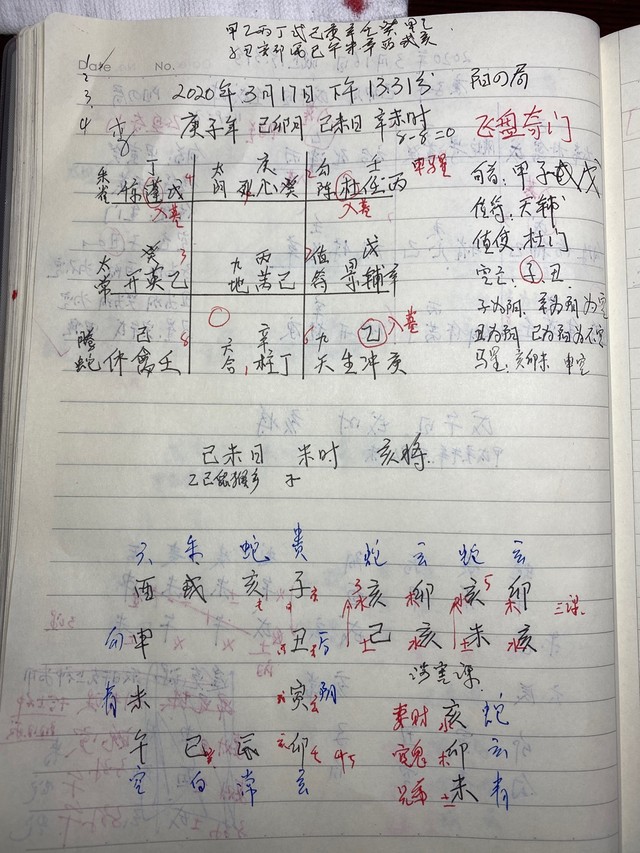 甲乙丙丁戊己庚辛壬癸 甲乙
子丑寅卯辰巳午未申酉戌亥
Date No.
1
2
3.
4
2020年3月17日 下午 13:31分 阳四局
庚子年 己卯月 己未日 辛未时 飞盘奇门
8-8=0
朱雀 丁 4 太阴 庚 2 勾陈 壬 甲
惊 蓬 戊 死心癸 杜任丙
入墓 入墓
旬首:甲子戊
值符:天辅
值使:杜门
太常 癸 3 九地 丙 7 值符 戊
开英乙 芮己 景辅辛
空亡:子.丑
子为阳.
丑为阴
马星:亥卯未 申空
腾蛇 己 8 六合 辛 1 九天 乙 6 入墓
休禽壬 柱丁 生冲庚
己未日 未时 亥将
乙己鼠猴乡 子
六 朱 蛇 贵 蛇 玄 蛇 玄
酉 戌 亥 子 亥 卯 亥 卯 三课
勾 申 丑 后 己 亥 未 亥
涉害课
青 未 寅 阴 妻财 亥 蛇
午 巳 辰 卯 官鬼 卯 玄
空 白 常 玄 兄弟 未 青